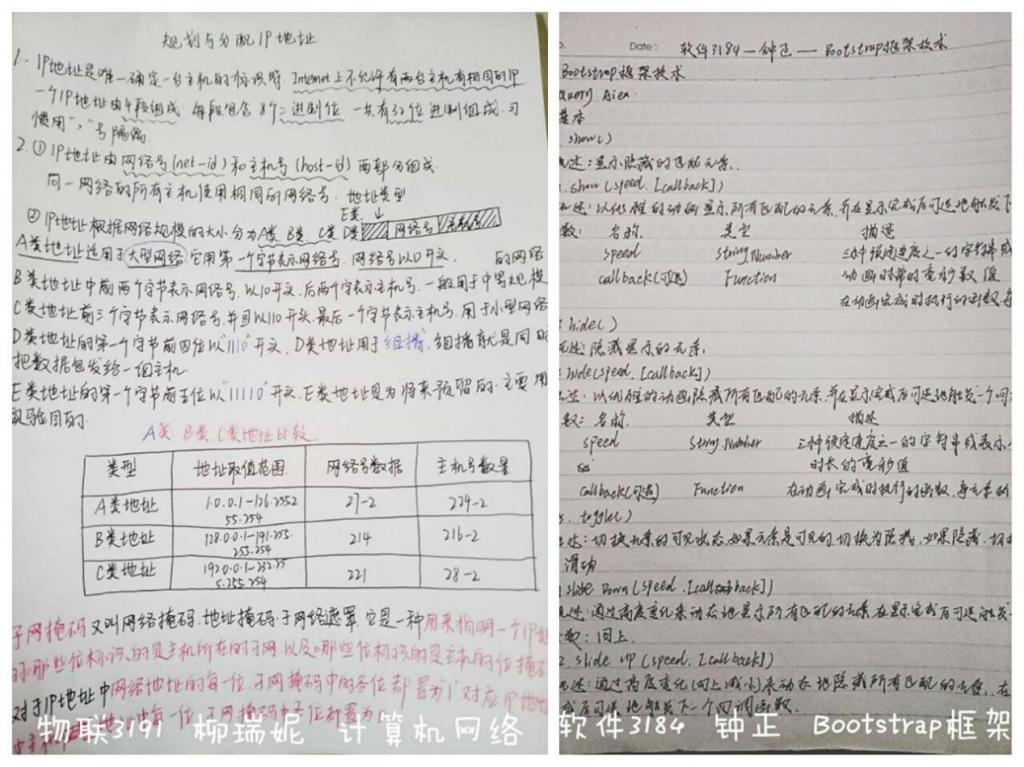 规划与分配IP地址
1、IP地址是唯一确定一台主机的标识符 Internet上不允许有两台主机有相同的IP
一个IP地址由4段组成 每段包含8个二进制位 一共有32位进制组成.习
惯用"."号隔离
2.①IP地址由网络号(net-id)和主机号(host-id)两部分组成.
同一网络的所有主机使用相同的网络号. 地址类型
E类
②IP地址根据网络规模的大小分为A类 B类 C类 D类 网络号 主机号
A类地址适用于大型网络 它用第一个字节表示网络号. 网络号以0开头. 的网络
B类地址中前两个字节表示网络号.以10开头.后两个字表示主机号.一般用于中等规模
C类地址前三个字节表示网络号.并且以110开头.最后一个字节表示主机号.用于小型网络
D类地址的第一个字节前四位以"1110"开头.D类地址用于"组播".组播就是同时
把数据包发给一组主机
E类地址的第一个字节前五位以"11110"开头.E类地址是为将来预留的.主要用
实验目的.
A类.B类.C类地址比较
类型 地址取值范围 网络号数据 主机号数量
A类地址 1.0.0.1-126.255.2 27-2 224-2
55.254
B类地址 128.0.0.1-191.255. 214 216-2
255.254
C类地址 192.0.0.1-223.25 221 28-2
5.255.254
子网掩码又叫网络掩码.地址掩码.子网络遮罩.它是一种用来指明一个IP地
的哪些位标识的是主机所在的子网.以及哪些位标识的是主机的位掩码
对于IP地址中网络地址的每一位.子网掩码中的各位都置为"1".对应IP地
物联3191 柳瑞妮 计算机网络
Date: 软件3184—钟正— Bootstrap框架技术
Bootstrap框架技术
show()
述:显示隐藏的匹配元素.
show(speed,[callback])
述:以优雅的动画显示所有匹配的元素,并在显示完成后可选地触发下
数: 名称 类型 描述
speed String,Number 三种预定速度之一的字符串或
callback(可选) Function 动画时常的毫秒数值
在动画完成时执行的函数,每
hide()
述:隐藏显示的元素.
hide(speed,[callback])
述:以优雅的动画隐藏所有匹配的元素,并在显示完成后可选地触发一个回
数: 名称 类型 描述
speed String,Number 三种预定速度之一的字符串或表示
时长的毫秒值
callback(可选) Function 在动画完成时执行的函数,每元素的
toggle()
述:切换元素的可见状态.如果元素是可见的,切换为隐藏,如果隐藏,切
滑动
slide Down(speed,[callback])
述:通过高度变化来动态地显示所有匹配的元素,在显示完成后可选触发一
数:同上.
2. slide up(speed,[callback])
述:通过高度变化(向上减小)来动态地隐藏所有匹配的元素,在
成后可选地触发下一个回调函数.
软件3184 钟正 Bootstrap框架